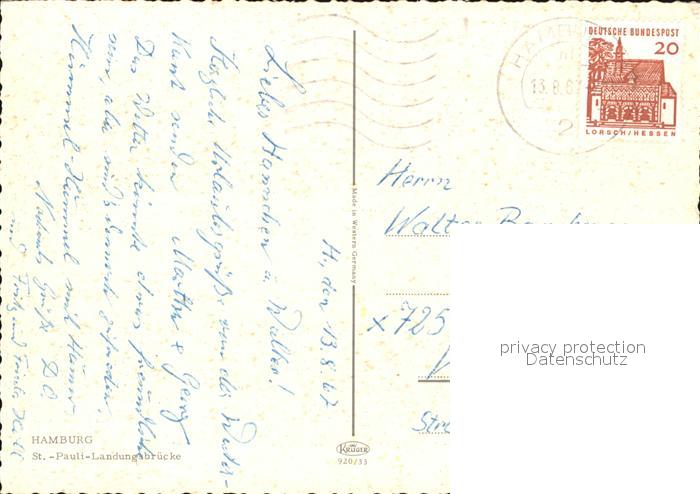 H, den 13.8.67
Liebes Hannchen u. Walter!
Herzliche Urlaubsgrüße von der Water-
kant senden Martha & Georg
Das Wetter könnte etwas freundlicher
sein, aber sind dennoch zufrieden.
Hummel-Hummel mit
Grüße D.O.
und
HAMBURG
St. -Pauli-Landungsbrücke
Made in Western Germany
KRÜGER
920/33
HAMBURG
13.8.67
2
DEUTSCHE BUNDESPOST
20
LORSCH/HESSEN
Herrn
Walter
x 725
Str
privacy protection
Datenschutz